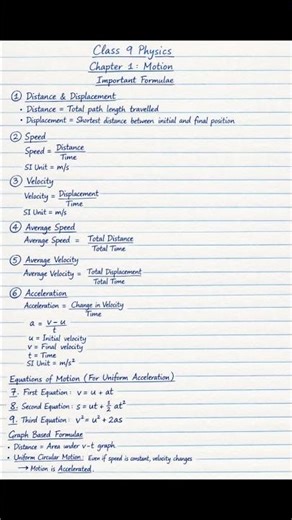 Class 9 Physics
Chapter 1 : Motion
Important Formulae
① Distance & Displacement
• Distance = Total path length travelled
• Displacement = Shortest distance between initial and final position
② Speed
Speed = Distance / Time
SI Unit = m/s
③ Velocity
Velocity = Displacement / Time
SI Unit = m/s
④ Average Speed
Average Speed = Total Distance / Total Time
⑤ Average Velocity
Average Velocity = Total Displacement / Total Time
⑥ Acceleration
Acceleration = Change in Velocity / Time
a = v - u / t
u = Initial velocity
v = Final velocity
t = Time
SI Unit = m/s²
Equations of Motion (For Uniform Acceleration)
7. First Equation : v = u + at
8. Second Equation : s = ut + 1/2 at²
9. Third Equation : v² = u² + 2as
Graph Based Formulae
• Distance = Area under v-t graph
• Uniform Circular Motion : Even if speed is constant, velocity changes
→ Motion is Accelerated.